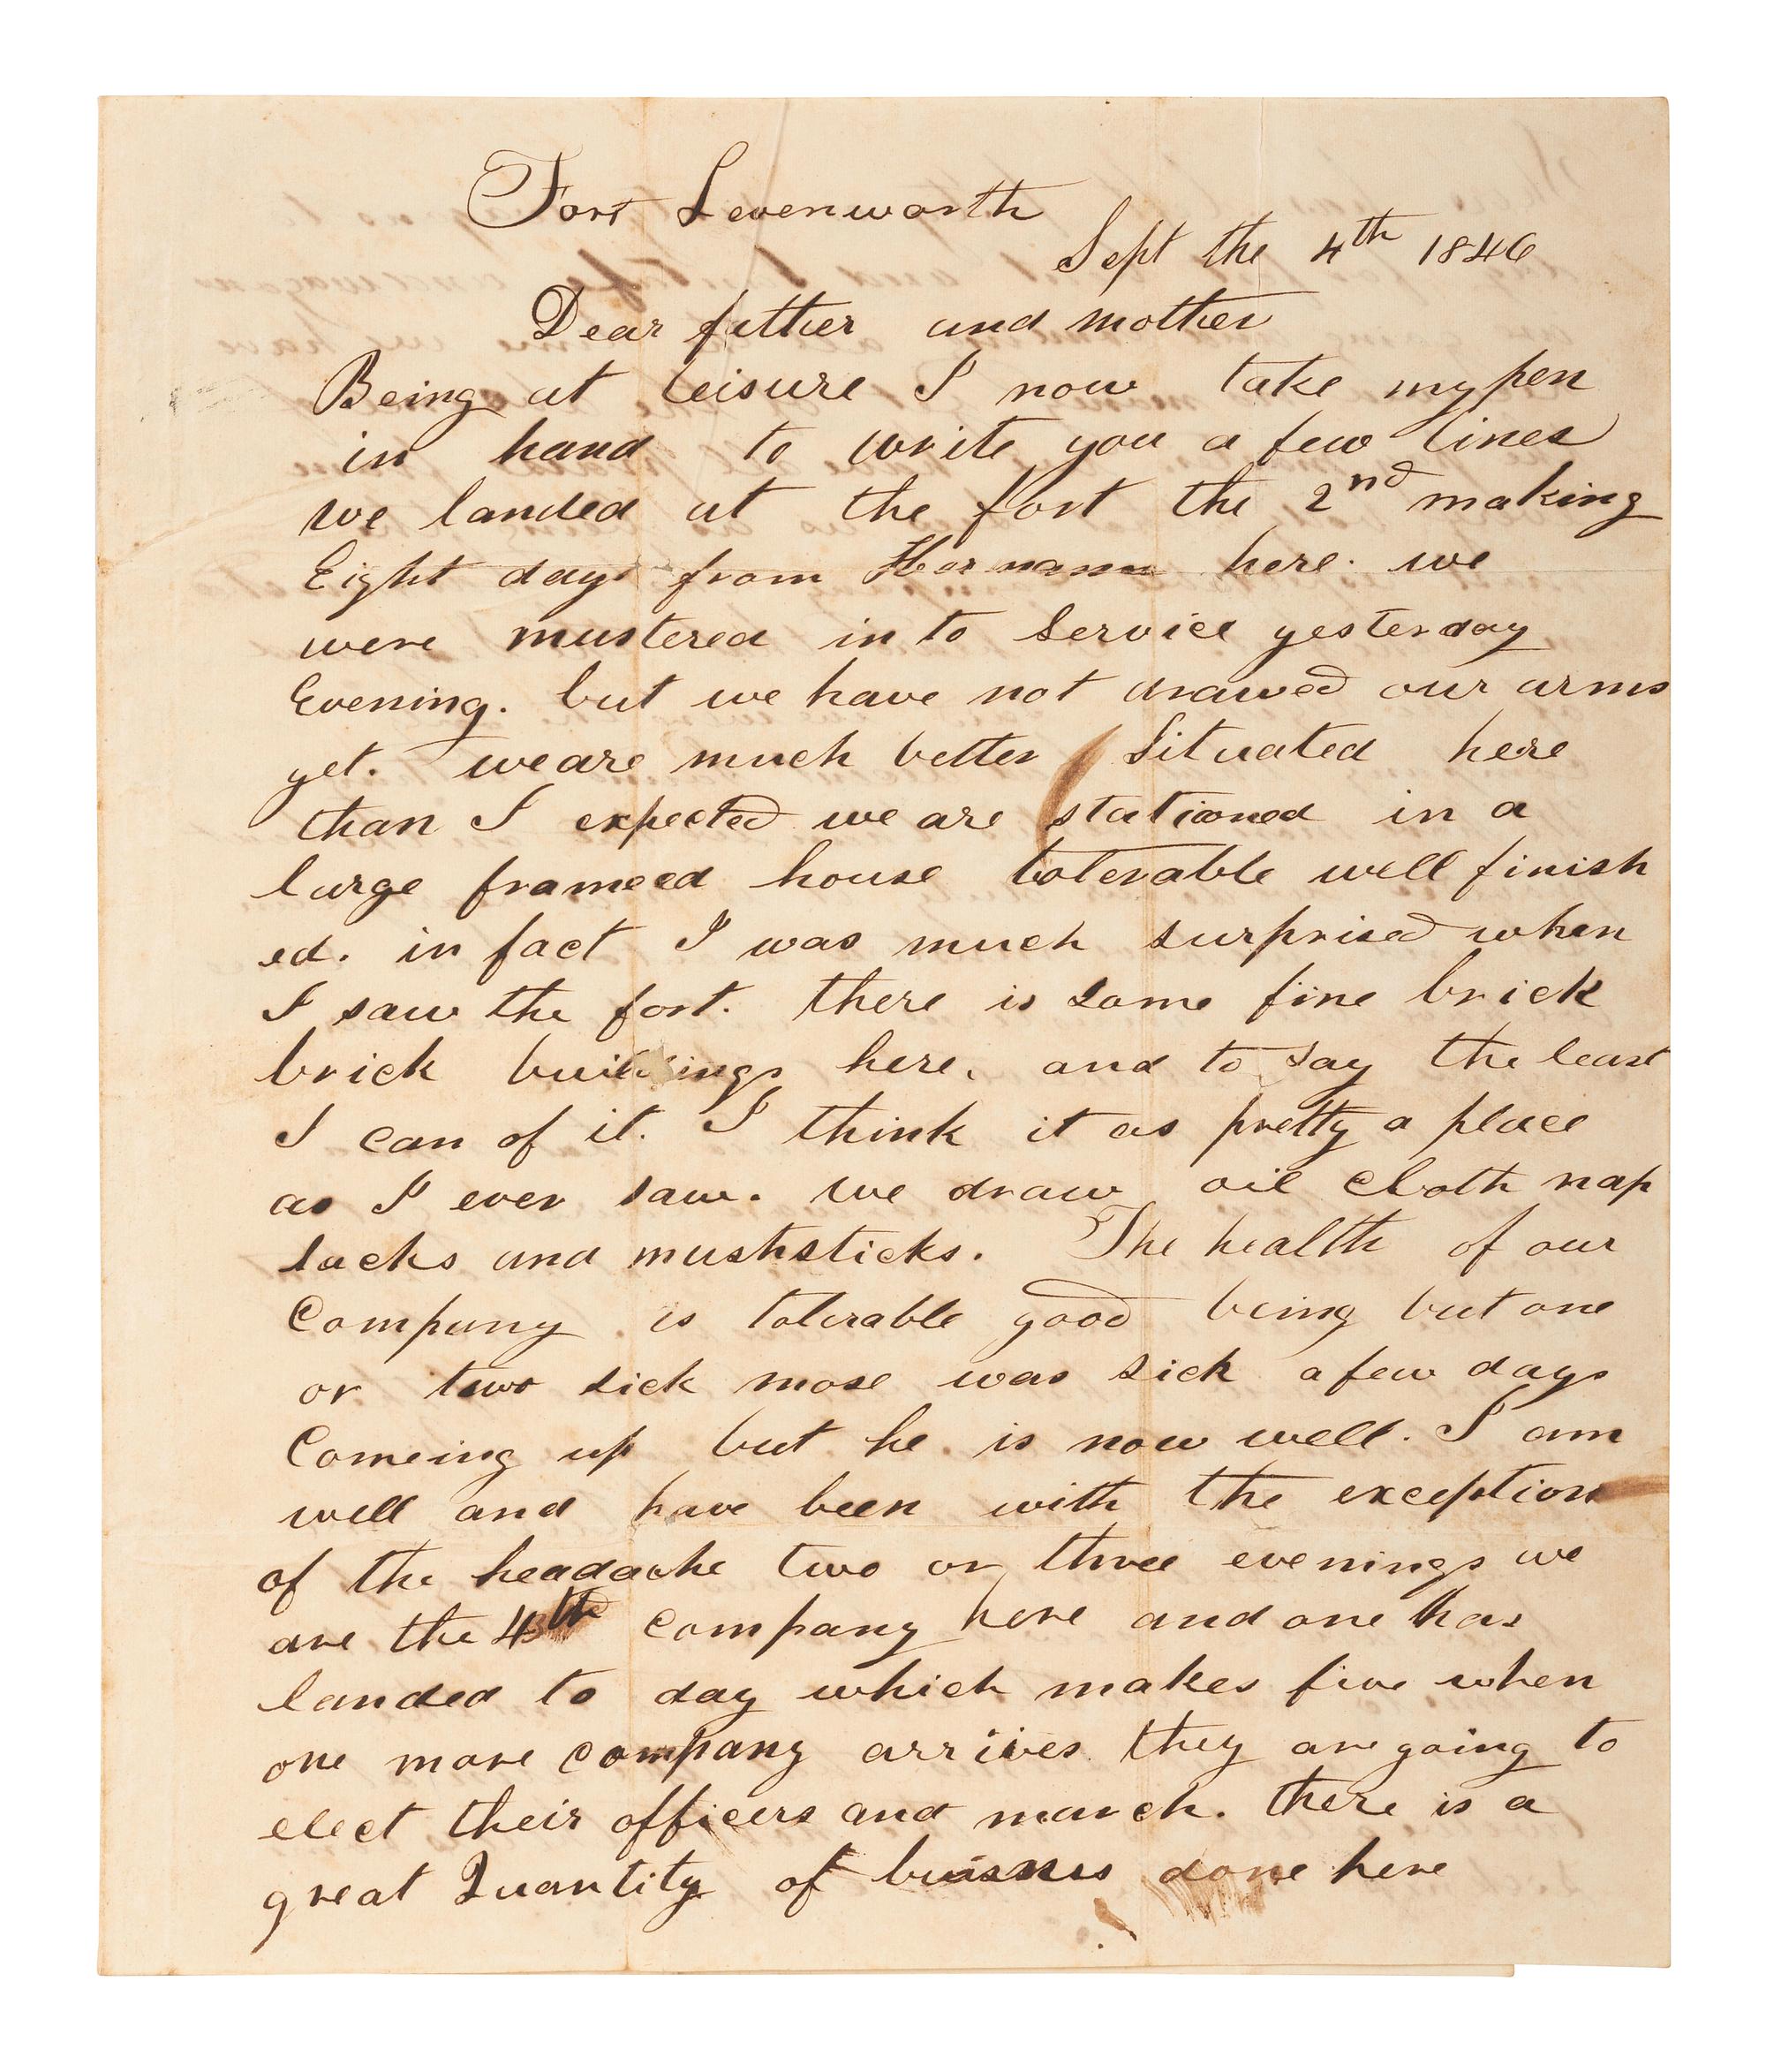 Fort Levenworth
Sept the 4th 1846
Dear father and mother
Being at leisure I now take my pen
in hand to write you a few lines
we landed at the fort the 2nd making
Eight days from Hermann here. we
were mustered in to Service yesterday
Evening. but we have not drawed our arms
yet. we are much better Situated here
than I expected we are stationed in a
large frameed house tolerable well finish
ed. in fact I was much surprised when
I saw the fort. there is some fine brick
brick buildings here. and to say the least
I can of it. I think it as pretty a place
as I ever saw. we draw oil cloth nap
sacks and mushsticks. The health of our
Company is tolerable good being but one
or two sick mose was sick a few days
Comeing up but he is now well. I am
well and have been with the exception
of the headache two or three evenings we
are the 4th company here and one has
landed to day which makes five when
one more company arrives they are going to
elect their officers and march. there is a
great Quantity of buisness done here